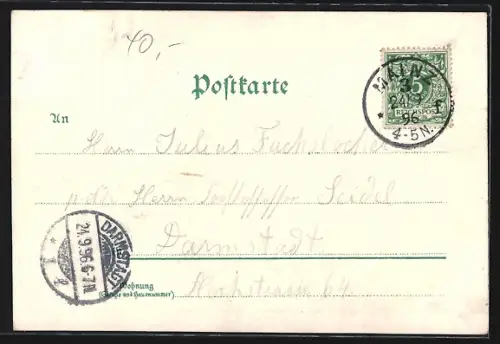 40,-
Postkarte
MAINZ
3
24/9
96
4-5N.
5
REICHSPOST
f
An
Herrn Julius
p. Adr. Herrn Seidel
Darmstadt
DARMSTADT
24.9.96.6-7N.
Wohnung
(Straße und Hausnummer)
64